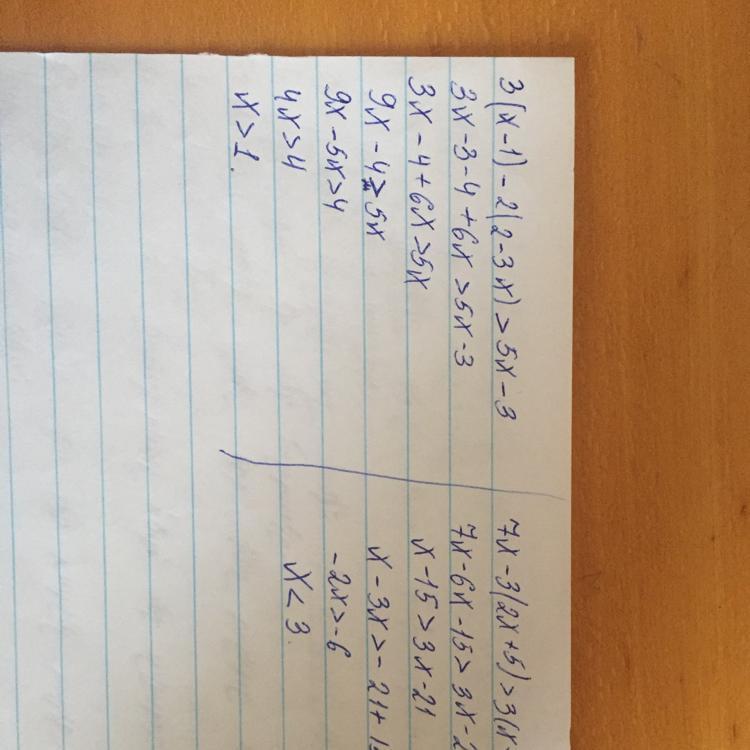 3(x-1)-2(2-3x)>5x-3
3x-3-4+6x>5x-3
3x-4+6x>5x
9x-4>5x
9x-5x>4
4x>4
x>1.
7x-3(2x+5)>3(x-
7x-6x-15>3x-2
x-15>3x-21
x-3x>-21+1
-2x>-6
x<3.